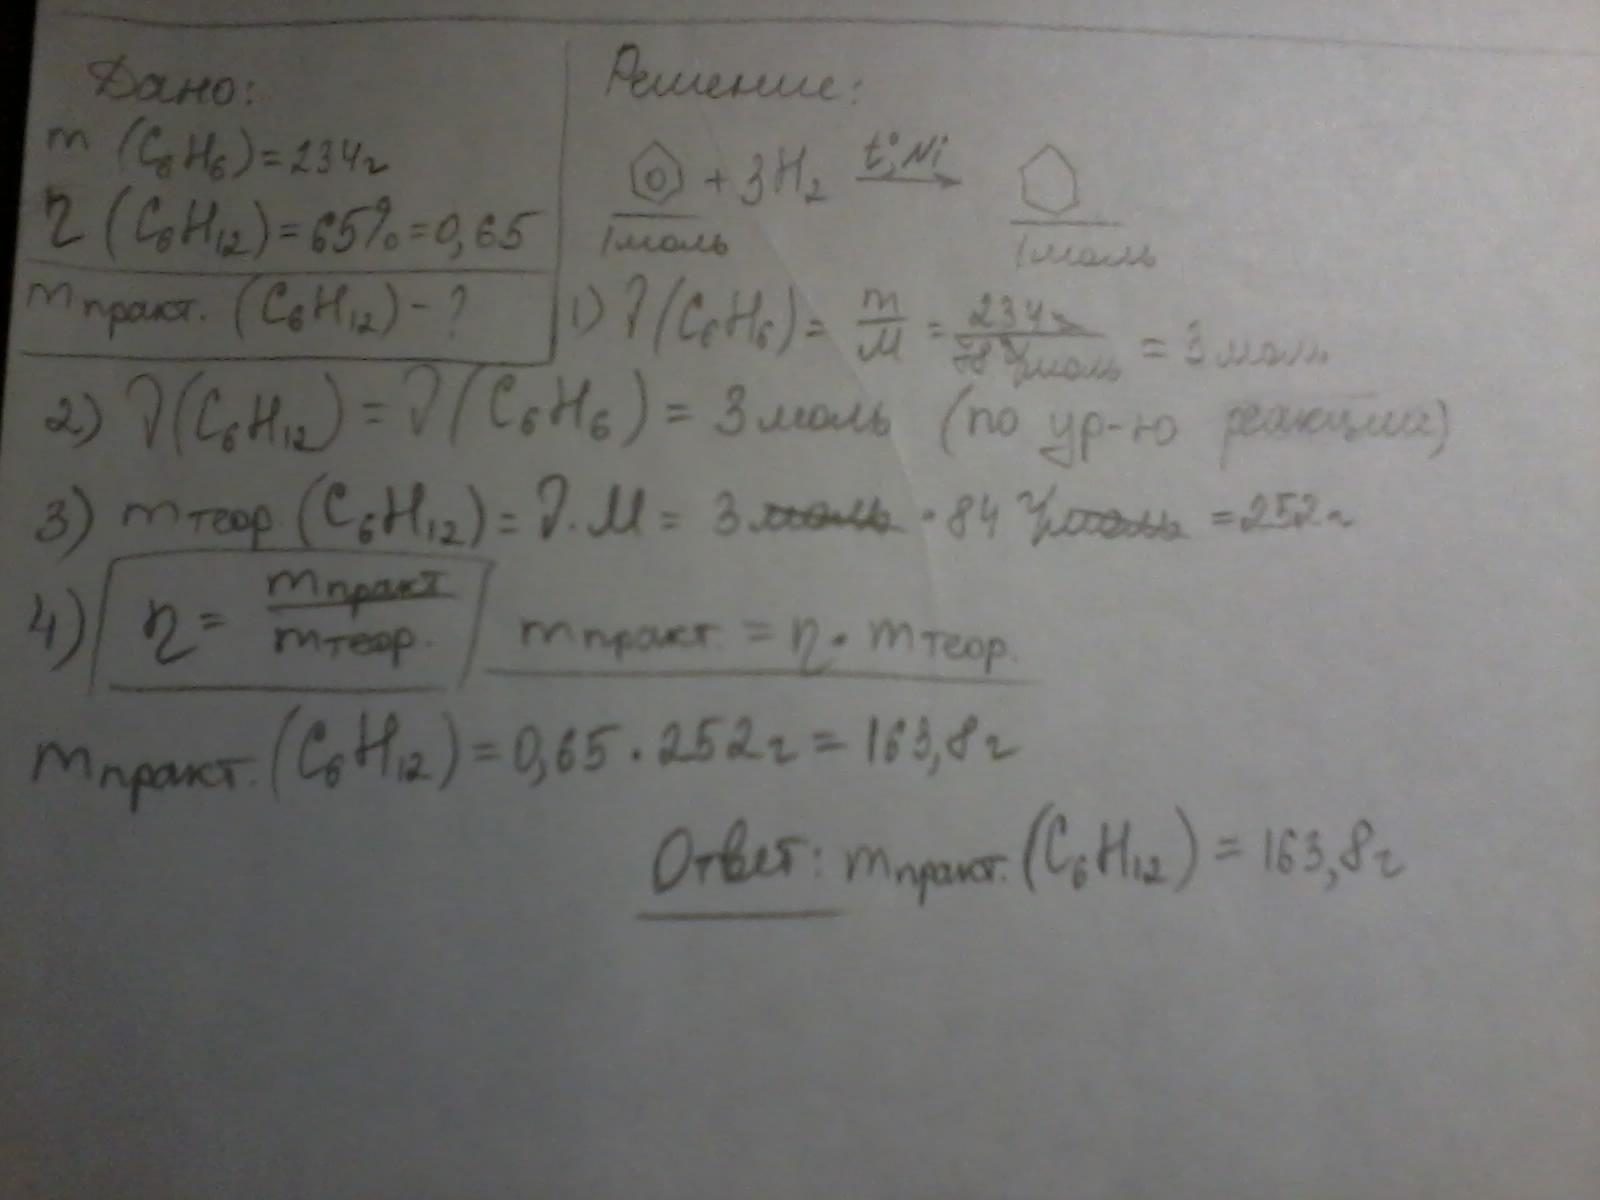 Дано:
m (C₆H₆)=234г
η (C₆H₁₂)=65%=0,65
mпракт. (C₆H₁₂) - ?
Решение:
+ 3H₂ t°, Ni →
1 моль 1 моль
1) ν(C₆H₆) = m/M = 234г/78 г/моль = 3 моль
2) ν(C₆H₁₂) = ν(C₆H₆) = 3 моль (по ур-ю реакции)
3) mтеор (C₆H₁₂) = ν·M = 3 моль · 84 г/моль = 252г
4) η = mпракт/mтеор. mпракт. = η · mтеор.
mпракт. (C₆H₁₂) = 0,65 · 252г = 163,8г
Ответ: mпракт. (C₆H₁₂) = 163,8г